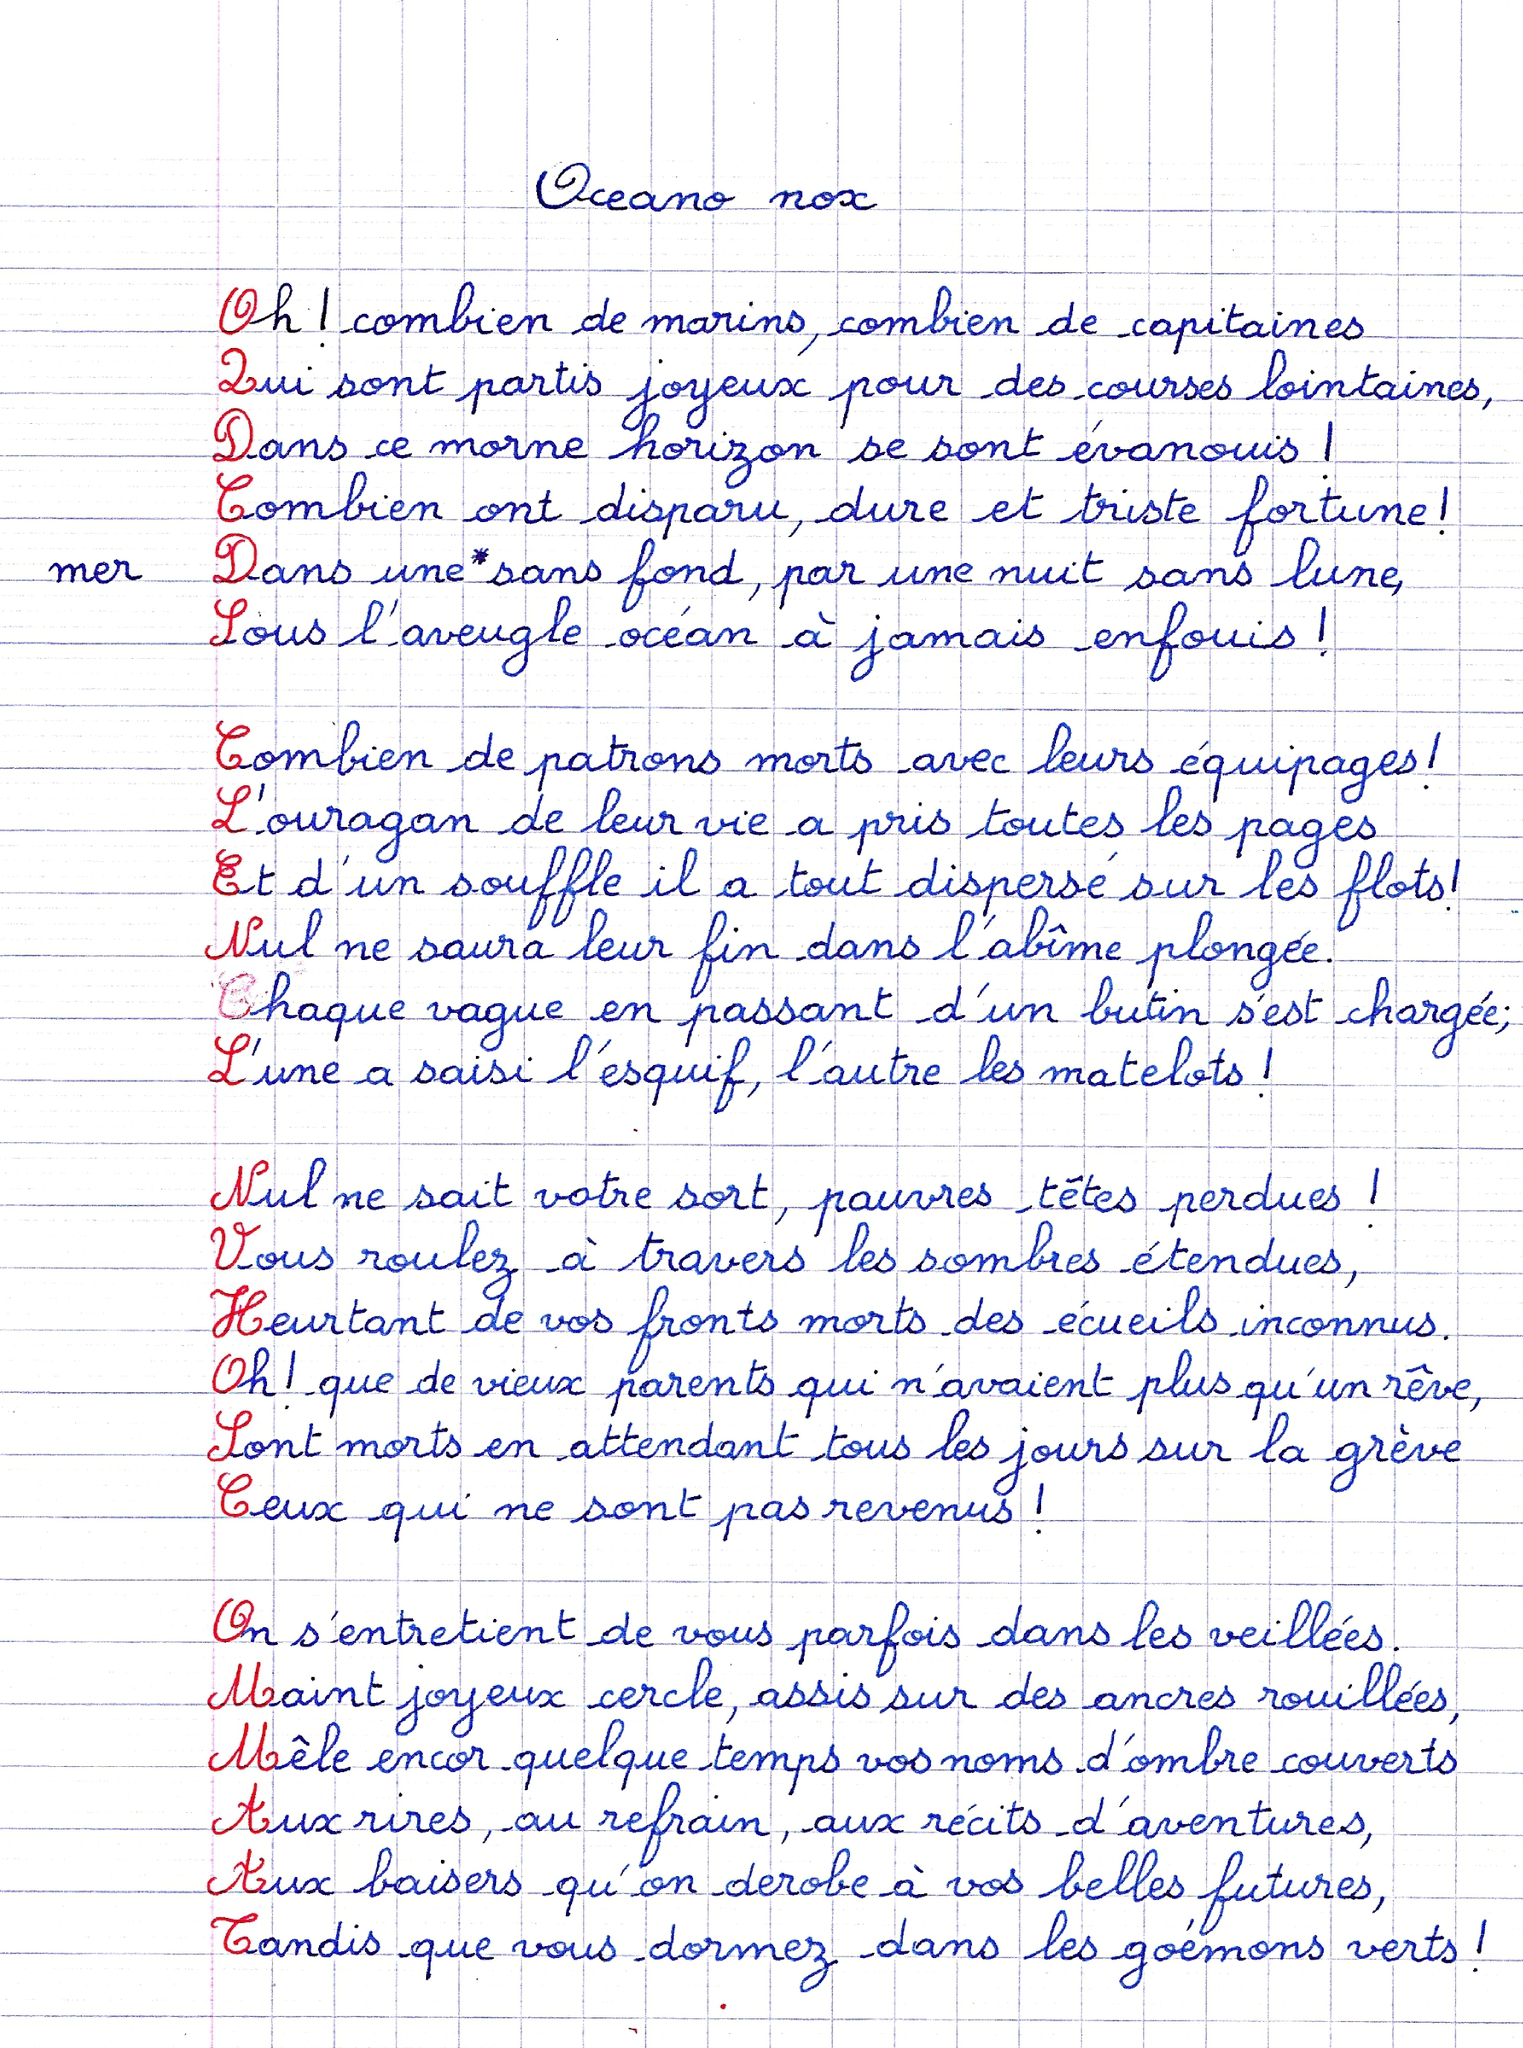 Oceano nox
Oh ! combien de marins, combien de capitaines
Qui sont partis joyeux pour des courses lointaines,
Dans ce morne horizon se sont évanouis !
Combien ont disparu, dure et triste fortune !
mer Dans une * sans fond, par une nuit sans lune,
Sous l'aveugle océan à jamais enfouis !
Combien de patrons morts avec leurs équipages !
L'ouragan de leur vie a pris toutes les pages
Et d'un souffle il a tout dispersé sur les flots !
Nul ne saura leur fin dans l'abîme plongée.
Chaque vague en passant d'un butin s'est chargée;
L'une a saisi l'esquif, l'autre les matelots !
Nul ne sait votre sort, pauvres têtes perdues !
Vous roulez à travers les sombres étendues,
Heurtant de vos fronts morts des écueils inconnus.
Oh ! que de vieux parents qui n'avaient plus qu'un rêve,
Sont morts en attendant tous les jours sur la grève
Ceux qui ne sont pas revenus !
On s'entretient de vous parfois dans les veillées.
Maint joyeux cercle, assis sur des ancres rouillées,
Mêle encor quelque temps vos noms d'ombre couverts
Aux rires, au refrain, aux récits d'aventures,
Aux baisers qu'on derobe à vos belles futures,
Tandis que vous dormez dans les goémons verts !